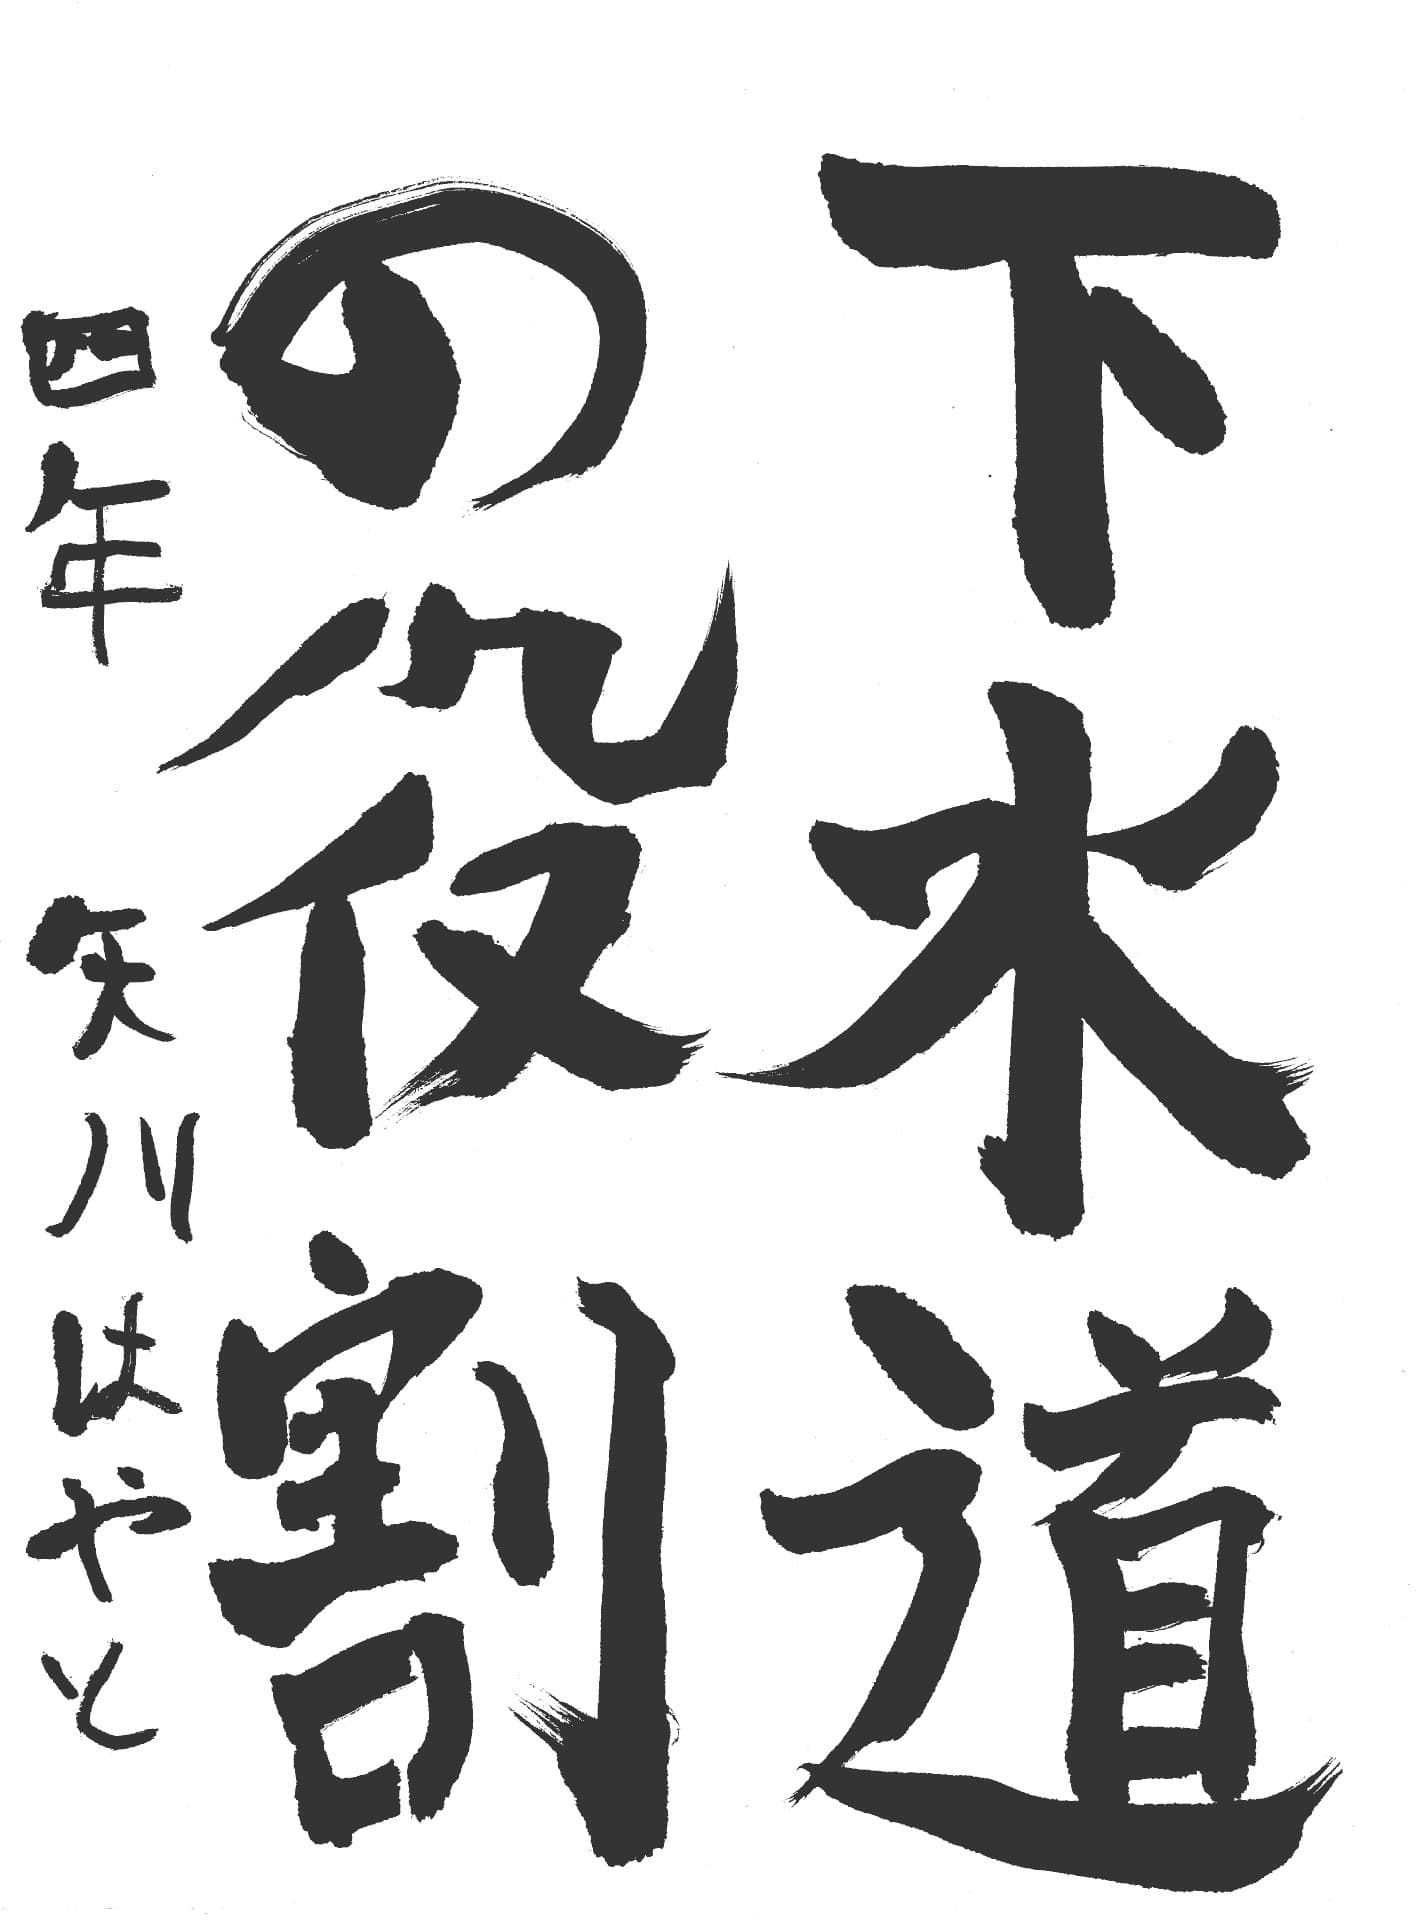 下水道
の役割
四年 矢川はやと